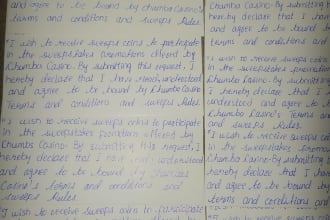 and agree to be bound by chumba Casino's
terms and conditions and sweeps Rules.
"I wish to receive sweeps coins to participate
in the sweepstakes promotions offered by
Chumba Casino. By submitting this request, I
hereby declare that I have read, understood
and agree to be bound by Chumba Casino
Terms and conditions and sweeps Rules.
"I wish to receive sweeps coins to participate
In the sweepstakes promotion offered by
Chumba Casino. By submitting this request, I
hereby declare that I have read understood
and agree to be bound by
Casino's terms and conditions and
sweeps Rules
"I wish to receive sweeps coins to participate
Chumba Casino. By submitting
hereby declare that I have
and agree to be bound
terms and conditions
I wish to receive sweeps coins
in the sweepstakes promotion
Chumba Casino. By submitting
I hereby declare that I
understood and agree to
Chumba Casino's Terms
and sweeps Rules.
I wish to receive sweeps
in the sweepstakes
Chumba Casino. By submitting
I hereby declare that I have
and agree to be bound by
terms and conditions and